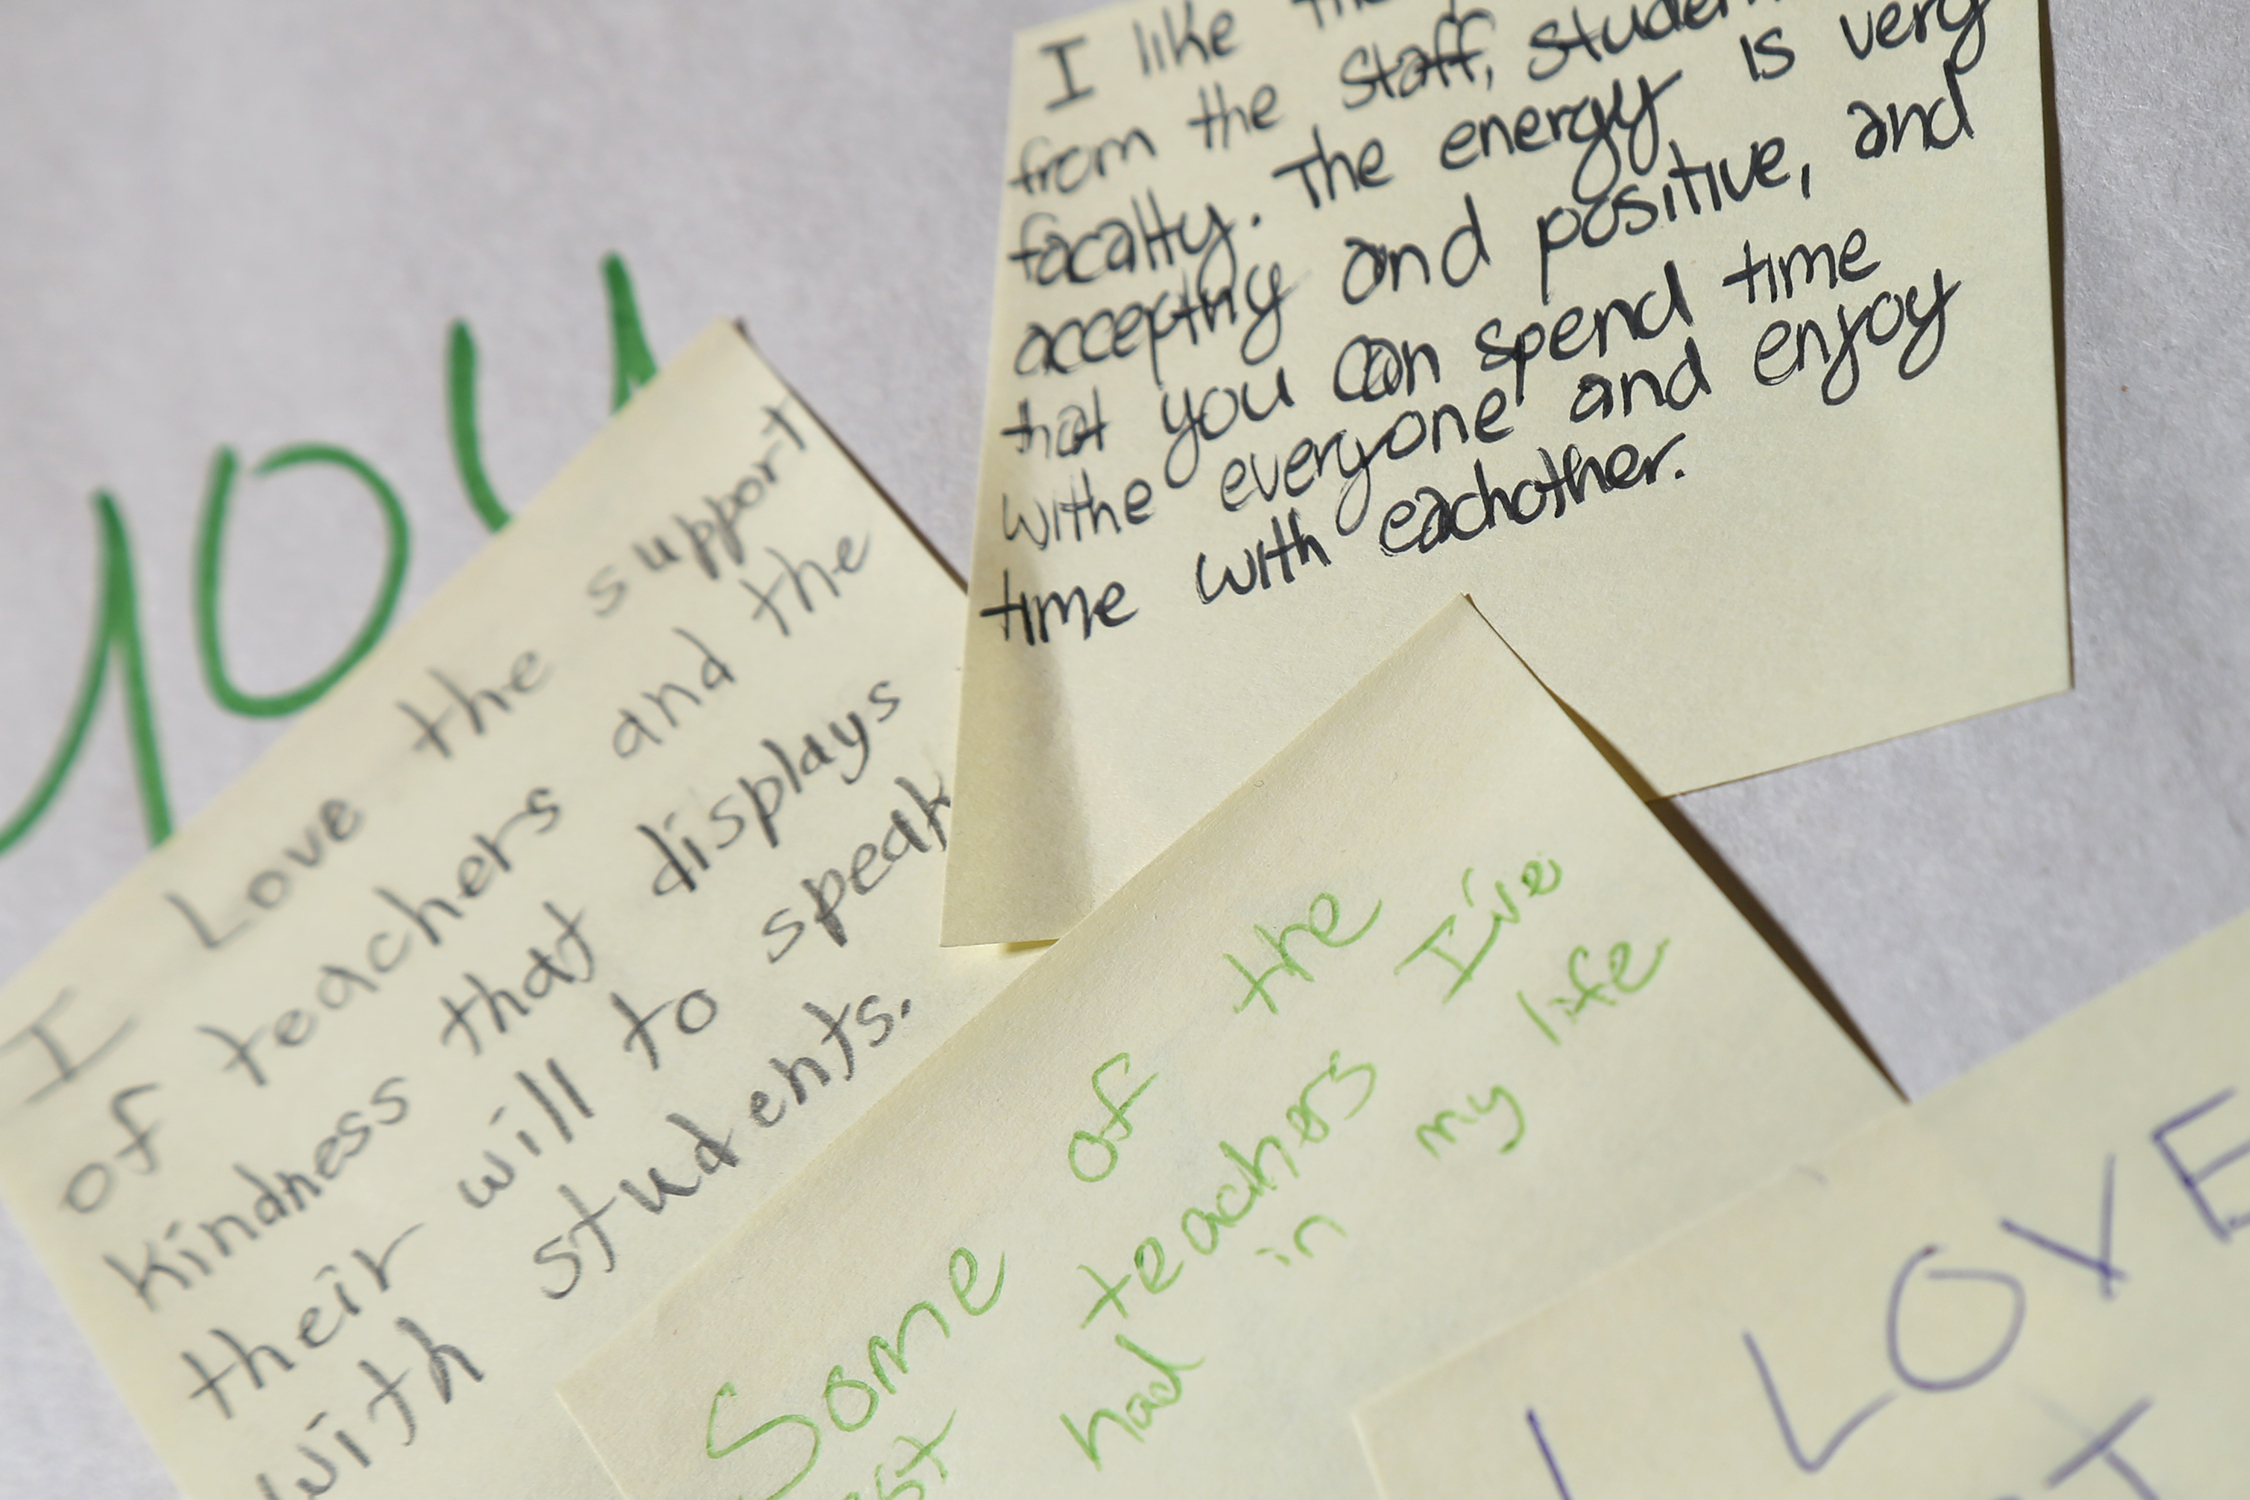 I like
from the staff,
facalty. The energy is very
accepting and positive, and
that you can spend time
withe everyone and enjoy
time with eachother.
I Love the support
of teachers and the
kindness that displays
their will to speak
with students.
Some of the
teachers I've
had in my life
I LOVE